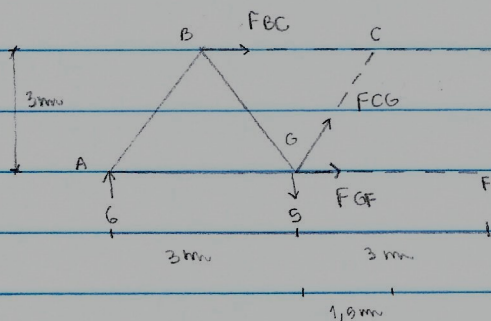 FBC
B C
3m
FCG
G
A F
FGF
6 5
3m 3m
1,5m